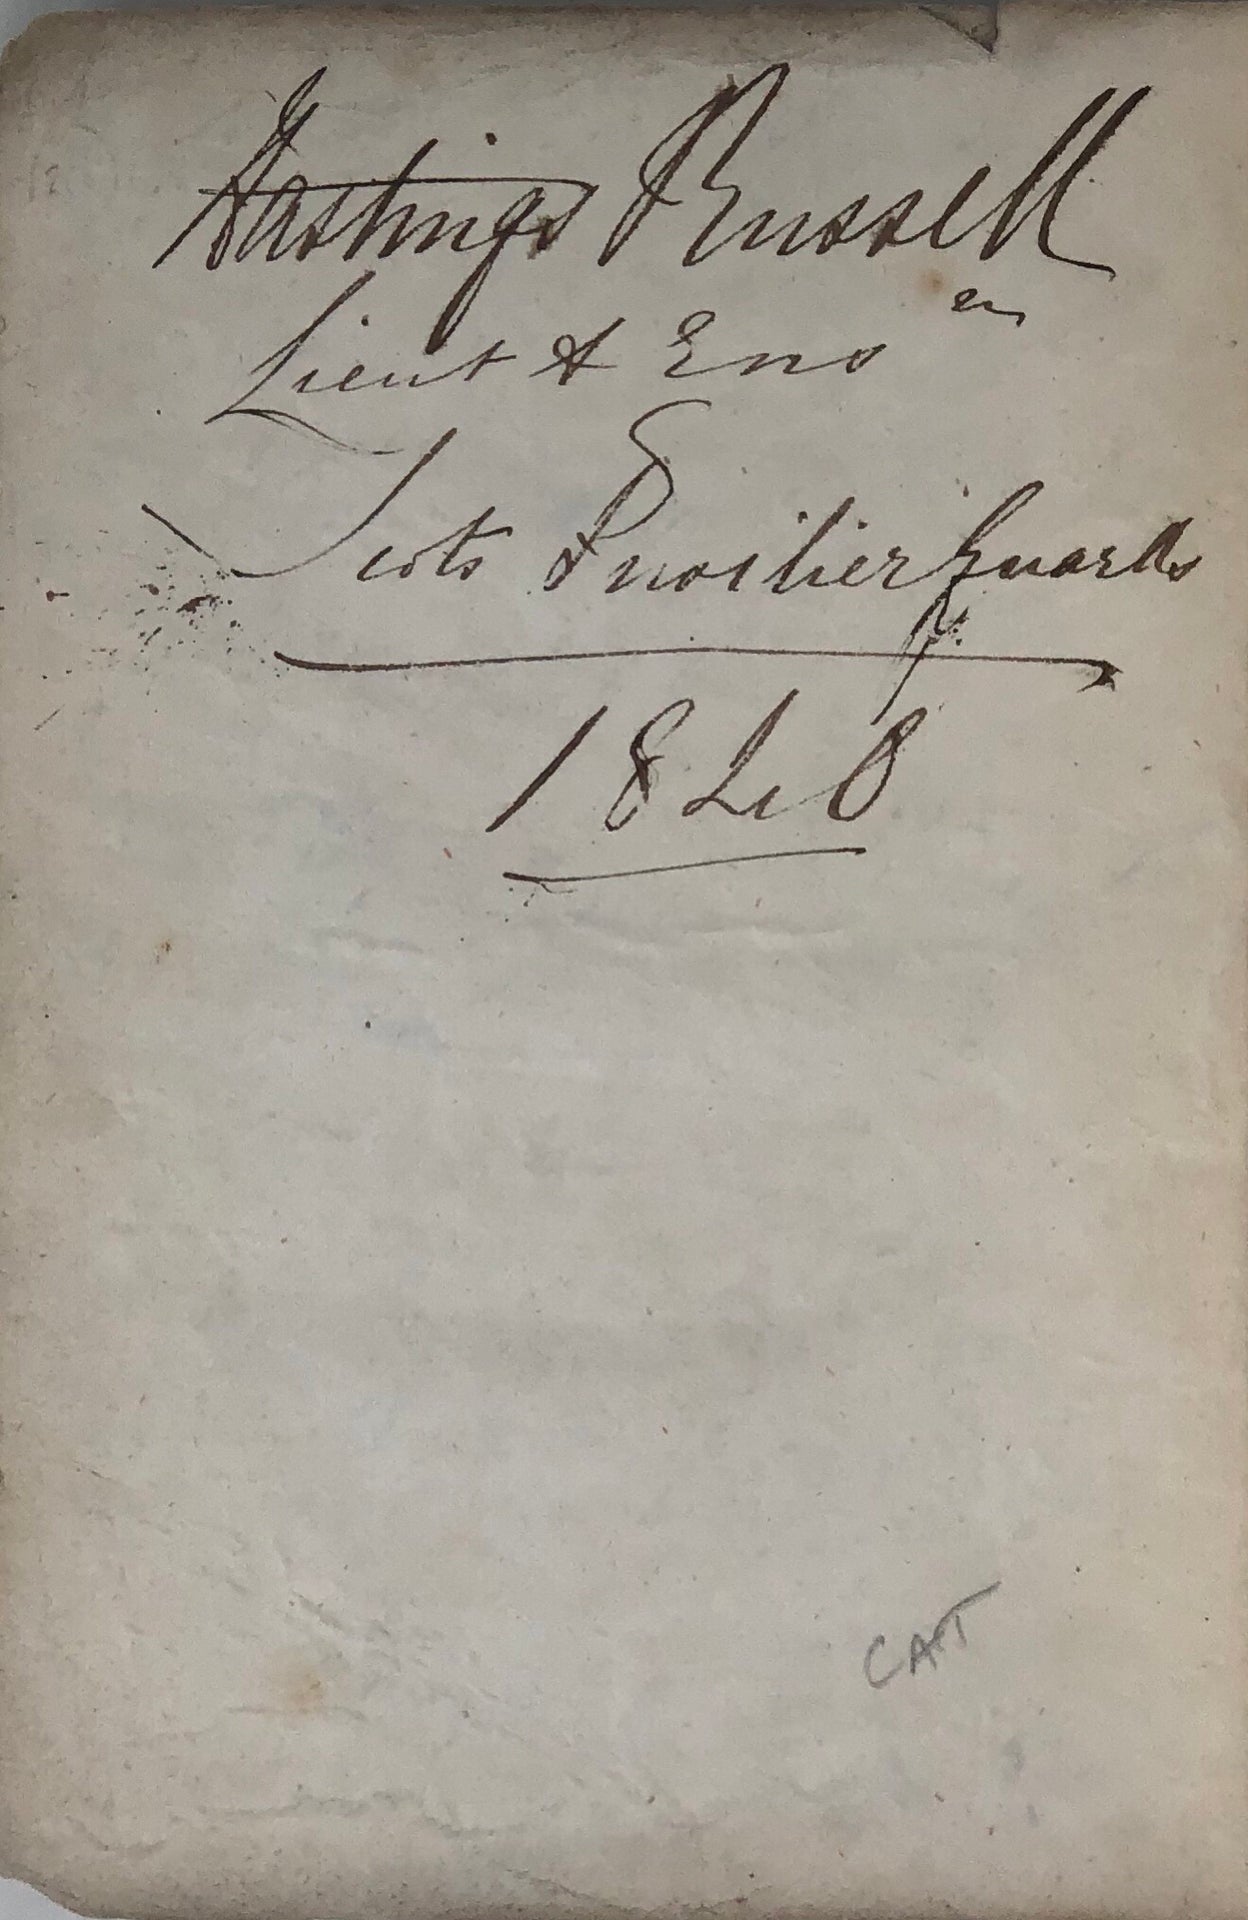 Hastings Russell
Lieut & Ens^n
Scots Fusilier Guards
1840
CAT